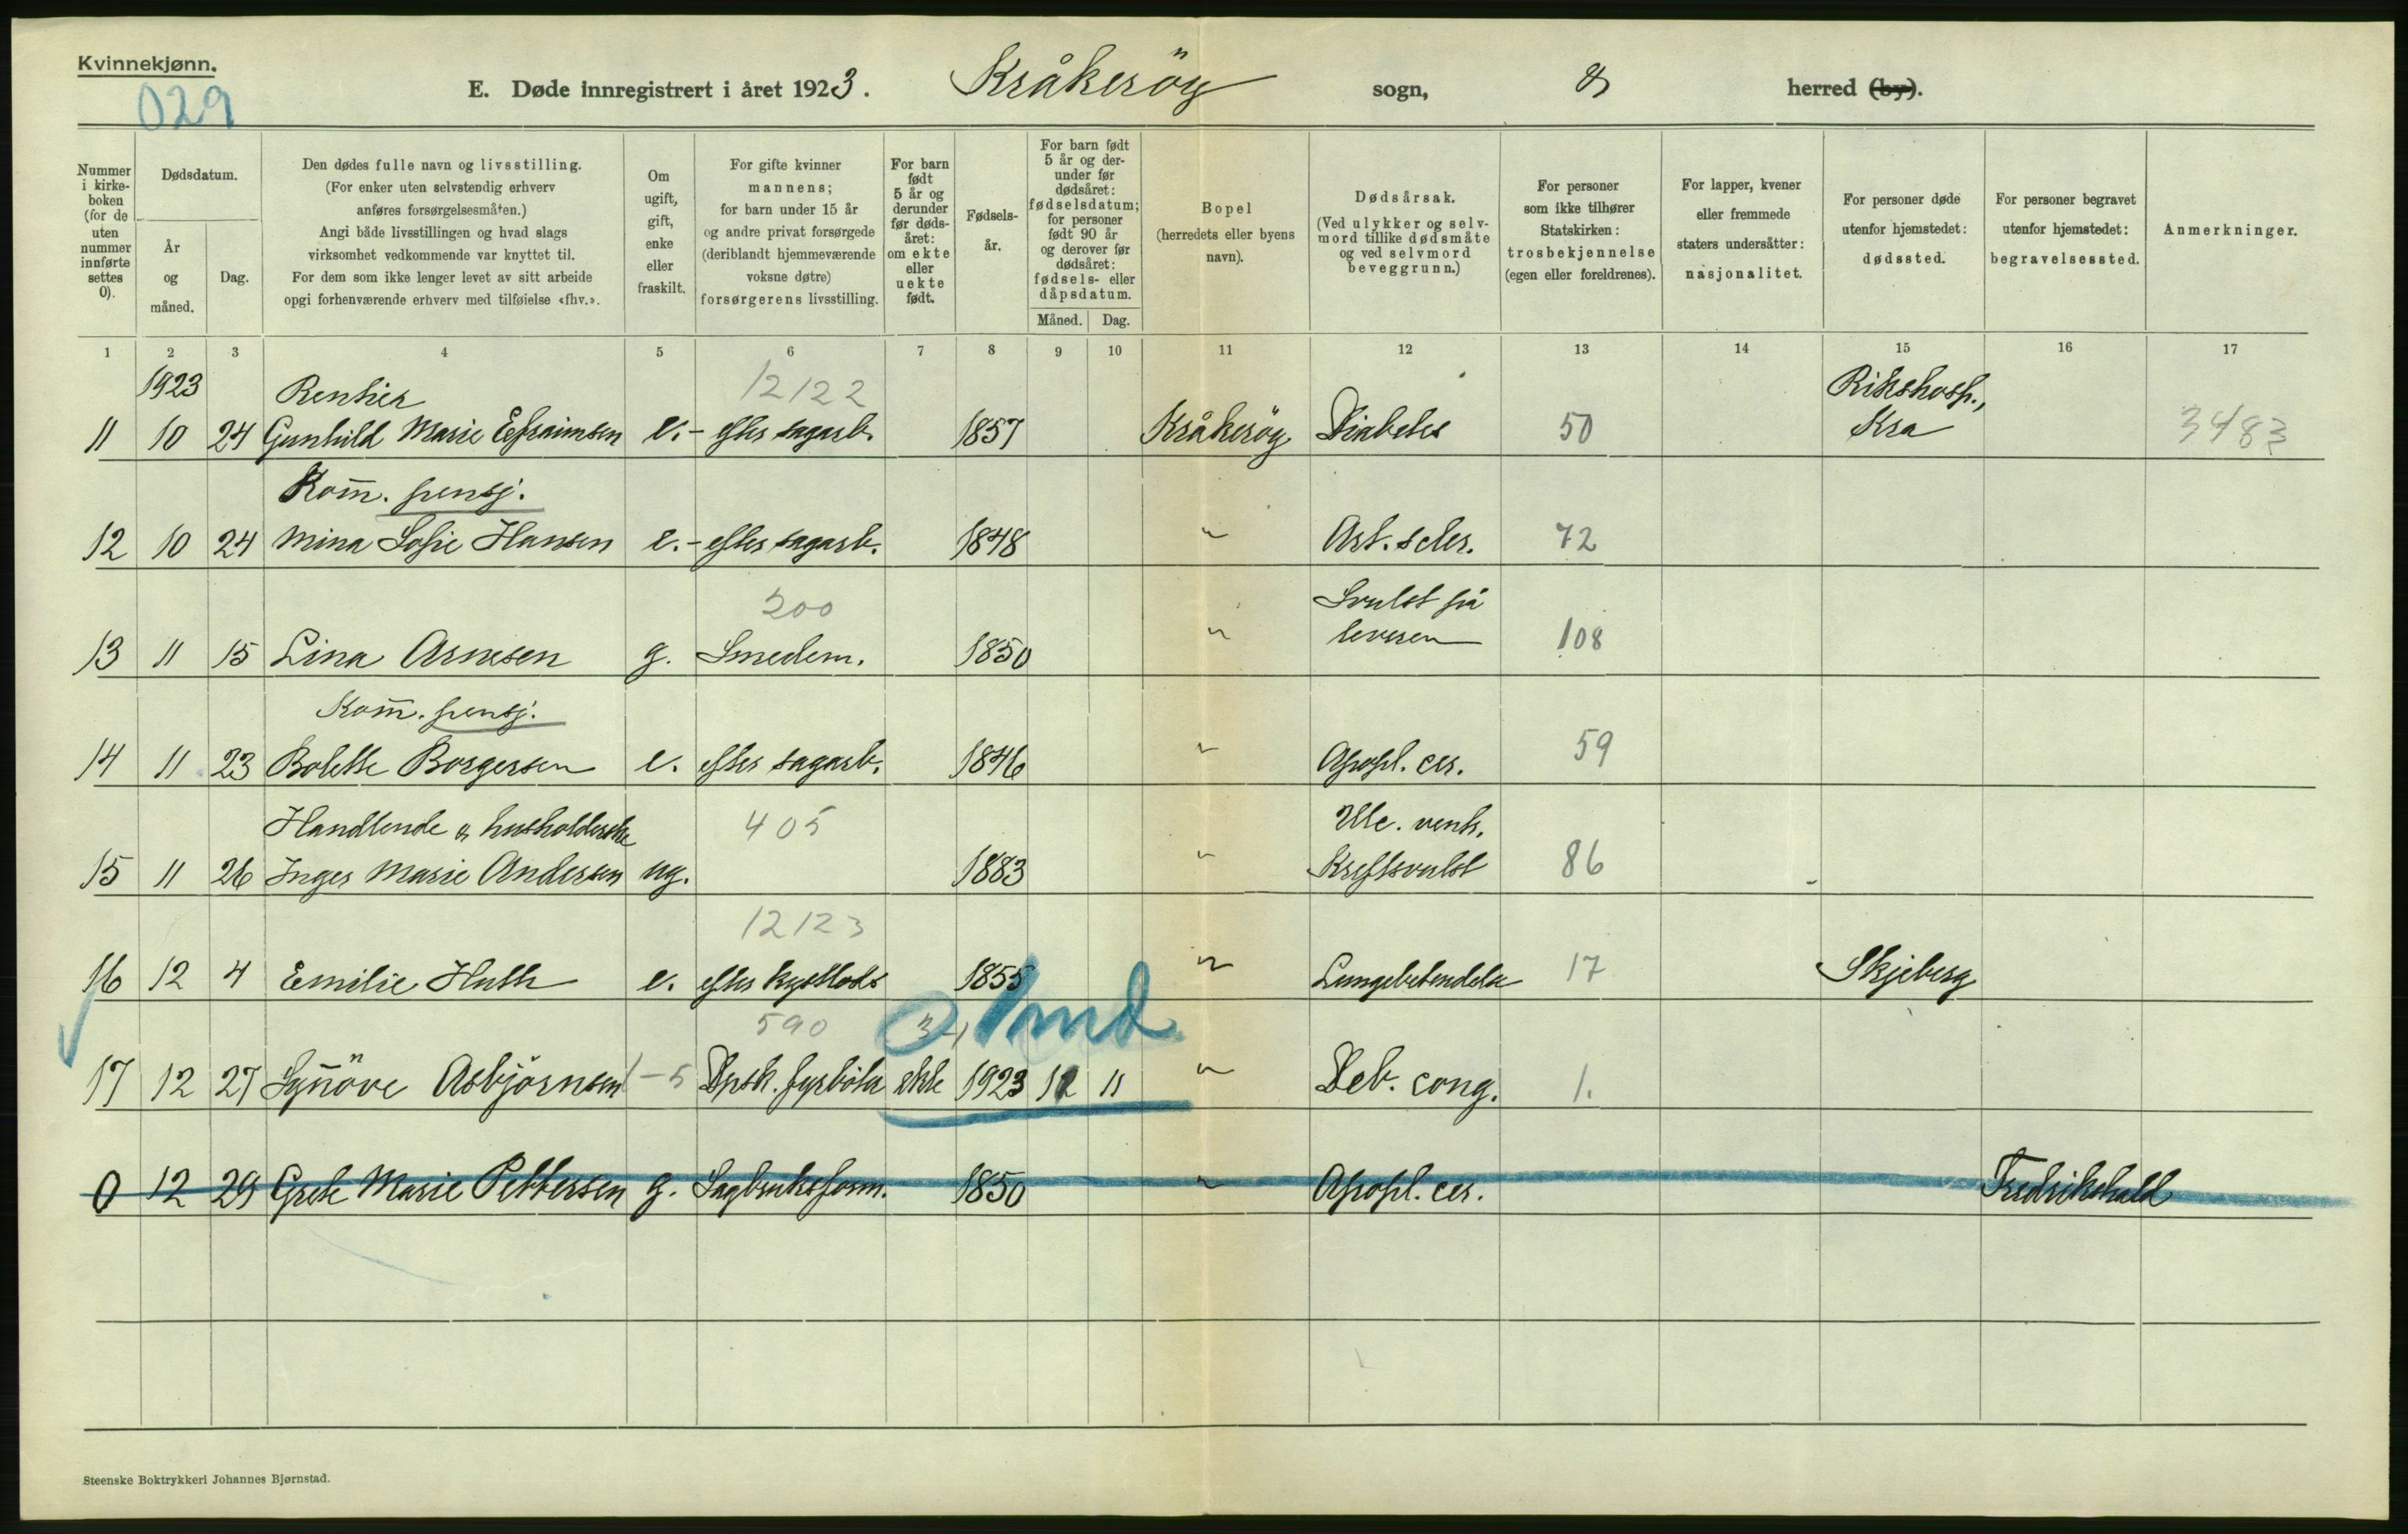 Kvinnekjønn.
029
E. Døde innregistrert i året 1923. Kråkeröy sogn, & herred (by).
Nummer i kirkeboken (for de uten nummer innførte settes 0).
Dødsdatum.
År og måned.
Dag.
Den dødes fulle navn og livsstilling.
(For enker uten selvstendig erhverv
anføres forsørgelsesmåten.)
Angi både livsstillingen og hvad slags
virksomhet vedkommende var knyttet til.
For dem som ikke lenger levet av sitt arbeide
opgi forhenværende erhverv med tilføielse «fhv.».
Om
ugift,
gift,
enke
eller
fraskilt.
For gifte kvinner
mannens;
for barn under 15 år
og andre privat forsørgede
(deriblandt hjemmeværende
voksne døtre)
forsørgerens livsstilling.
For barn
født
5 år og
derunder
før døds-
året:
om ekte
eller
uekte
født.
Fødsels-
år.
For barn født
5 år og der-
under før
dødsåret:
fødselsdatum;
for personer
født 90 år
og derover før
dødsåret:
fødsels- eller
dåpsdatum.
Måned. Dag.
Bopel
(herredets eller byens
navn).
Dødsårsak.
(Ved ulykker og selv-
mord tillike dødsmåte
og ved selvmord
beveggrunn.)
For personer
som ikke tilhører
Statskirken:
trosbekjennelse
(egen eller foreldrenes).
For lapper, kvener
eller fremmede
staters undersåtter:
nasjonalitet.
For personer døde
utenfor hjemstedet:
dødssted.
For personer begravet
utenfor hjemstedet:
begravelsessted.
Anmerkninger.
1 2 3 4 5 6 7 8 9 10 11 12 13 14 15 16 17
1923 Rentier 12122 Rikshosp.,
11 10 24 Gunhild Marie Eefraimsen e.- efter sagarb. 1857 Kråkeröy Diabetes 50 Kra 3483
Kom̄. pensj.
12 10 24 Mina Sofie Hansen e.- efter sagarb. 1848 " Art. scler. 72
200 Svulst på
13 11 15 Lina Arnesen g. Smedem. 1850 " leveren 108
Kom̄. pensj.
14 11 23 Bolette Borgersen e. efter sagarb. 1846 " Apopl. cer. 59
Handlende & husholderske 405 Ulc. ventr.
15 11 26 Inger Marie Andersen ug. 1883 " Kreftsvulst 86
12123
16 12 4 Emilie Huth e. efter kystlods 1855 " Lungebetendelse 17 Skjeberg
590 3-1 1 md
17 12 27 Syn̄öve Asbjörnsen 1-5 Dpsk. fyrböter ekte 1923 12 11 " Deb. cong. 1.
0 12 29 Grete Marie Pettersen g. Sagbruksform. 1850 " Apopl. cer. Fredrikshald
Steenske Boktrykkeri Johannes Bjørnstad.